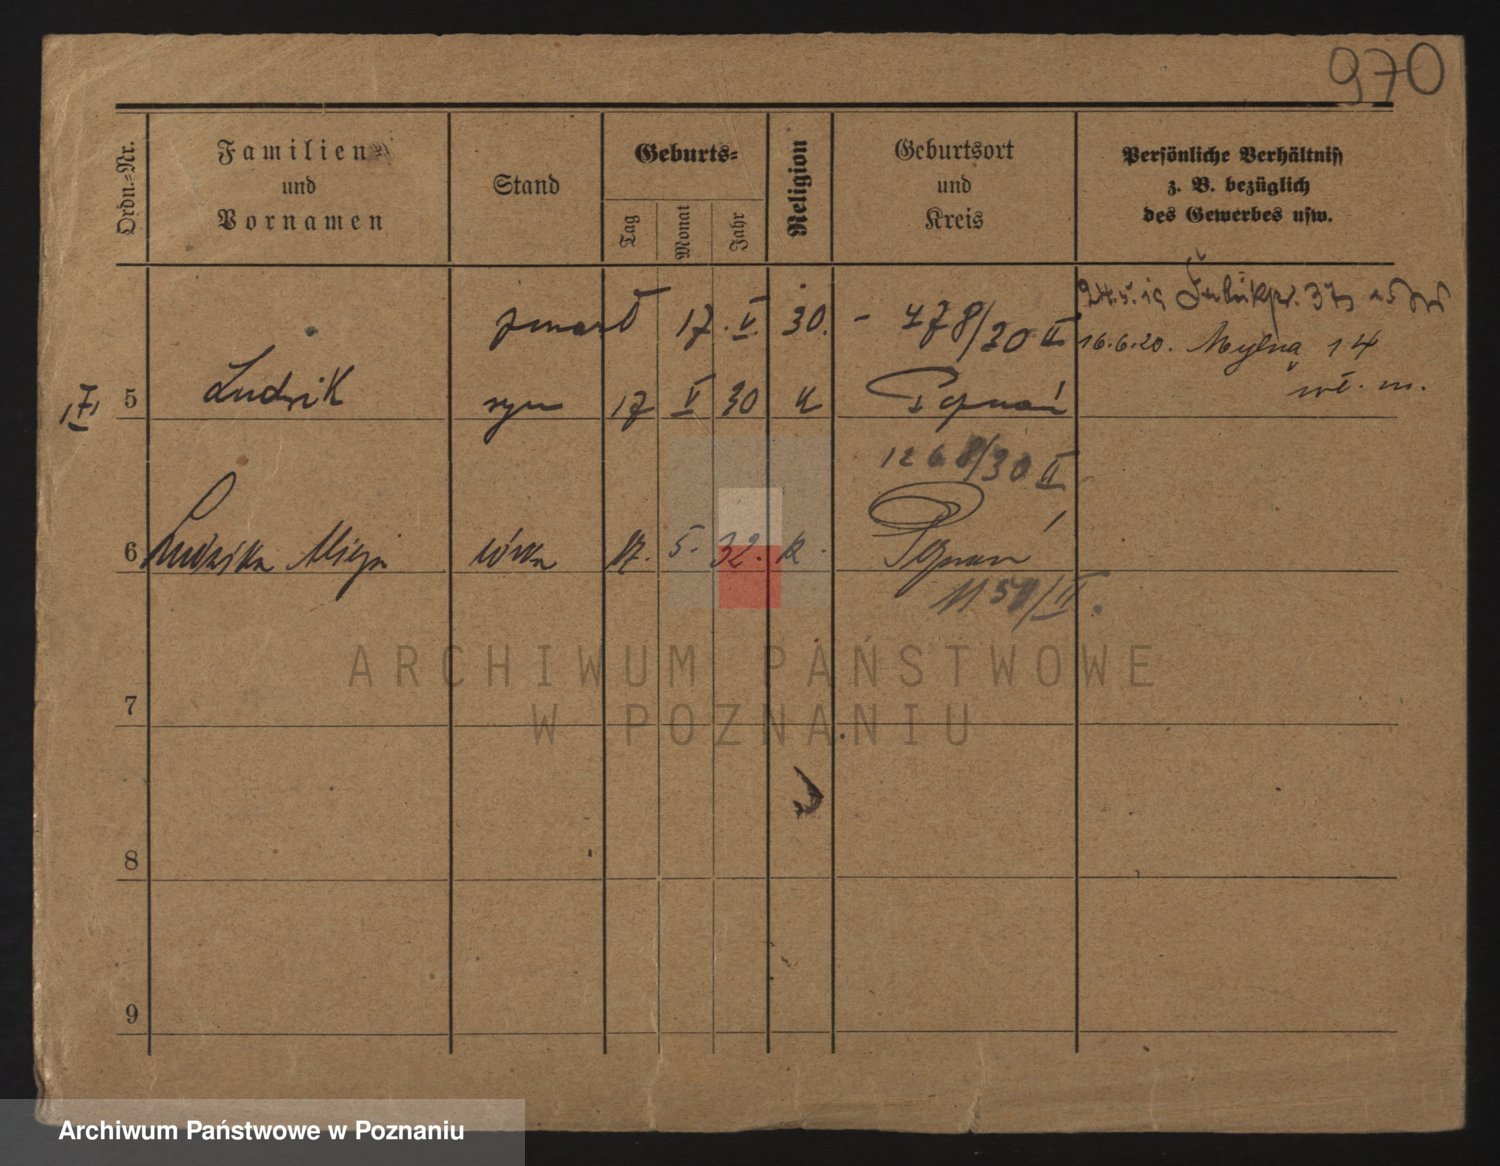 970
Ordn.-Nr.
Familien
und
Vornamen
Stand
Geburts-
Tag
Monat
Jahr
Religion
Geburtsort
und
Kreis
Persönliche Verhältniss
z. B. bezüglich
des Gewerbes usw.
24.5.19
zmarł 17. V. 30. - 478/30 II
16.6.20. Mylna 14
wł. m.
5 Ludwik syn 17 V 30 k Poznań
1268/30 II
6 Ludwika Alicja córka 17. 5. 32. k. Poznań
1159/II.
7
8
9
ARCHIWUM PAŃSTWOWE
W POZNANIU
Archiwum Państwowe w Poznaniu